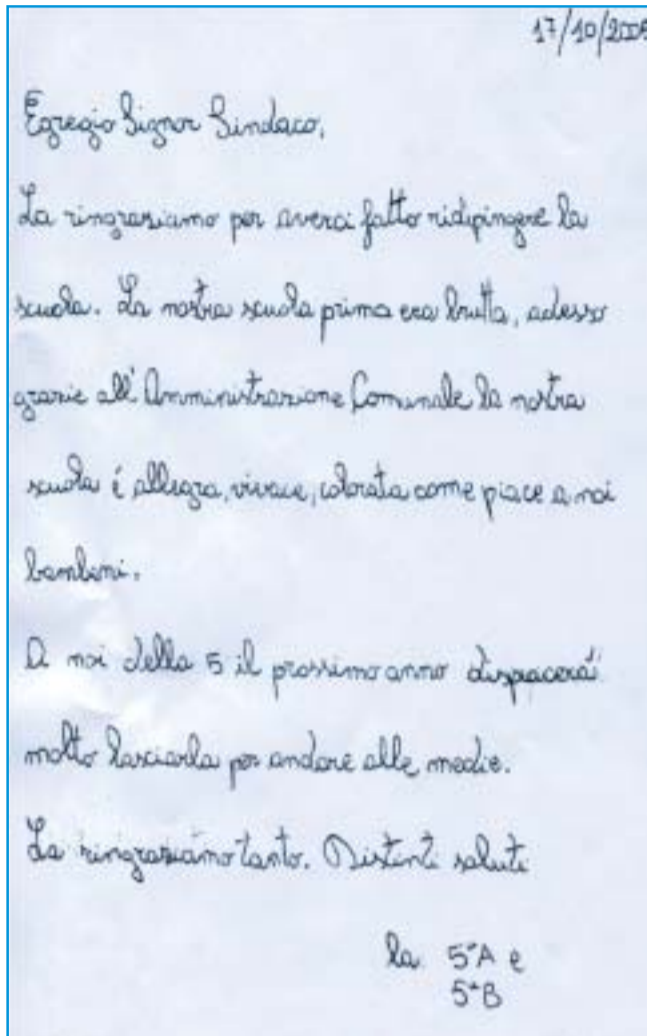 17/10/2005
Egregio Signor Sindaco,
La ringraziamo per averci fatto ridipingere la
scuola. La nostra scuola prima era brutta, adesso
grazie all'Amministrazione Comunale la nostra
scuola é allegra, vivace, colorata come piace a noi
bambini.
A noi della 5 il prossimo anno dispiacerá
molto lasciarla per andare alle medie.
La ringraziamo tanto. Distinti saluti
la 5ªA e
5ªB